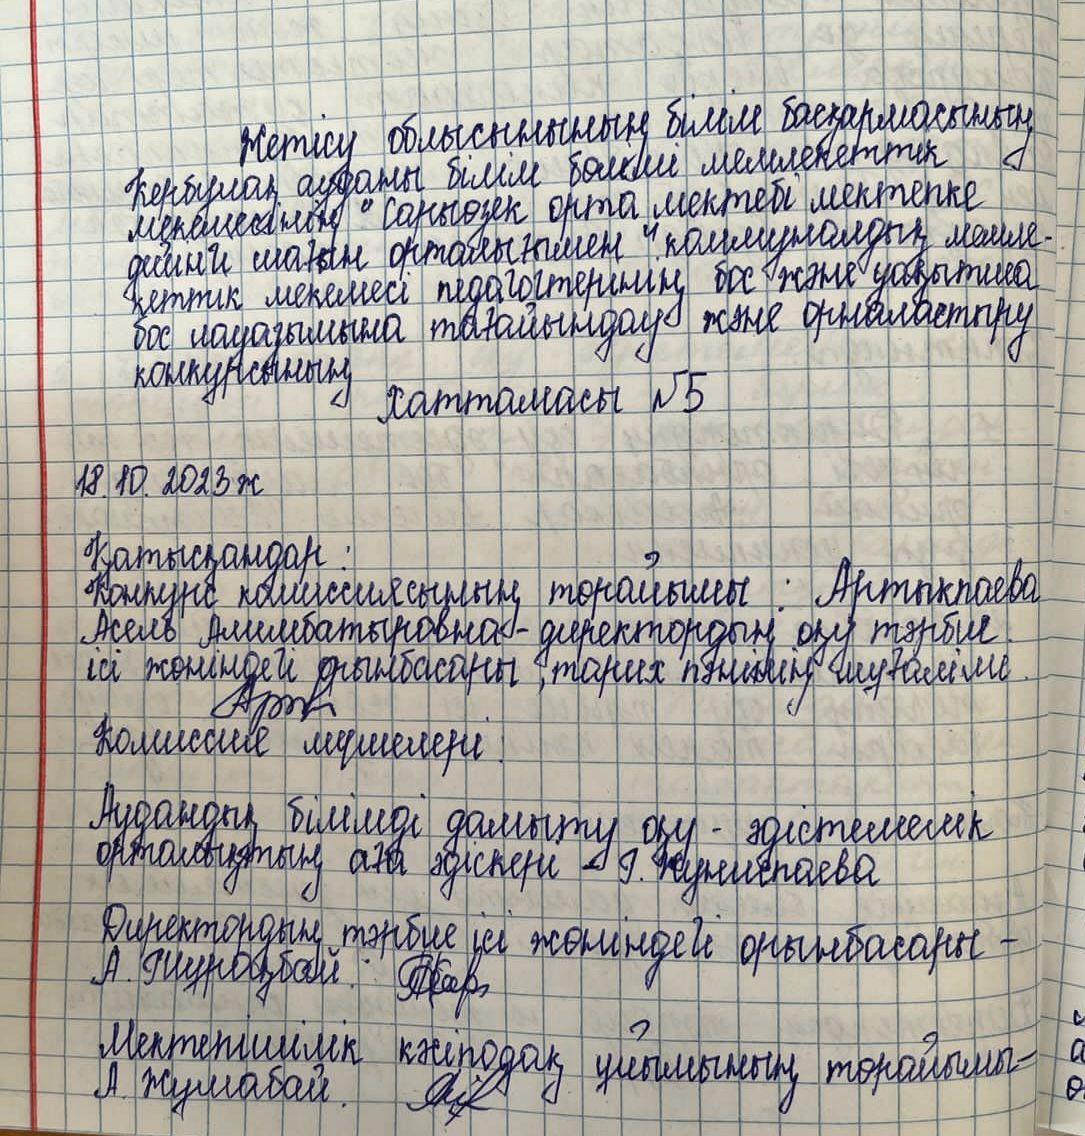 Жетісу облысынының білім басқармасының
Кербұлақ ауданы білім бөлімі мемлекеттік
мекемесінің "Сарыөзек орта мектебі мектепке
дейінгі шағын орталығымен" коммуналдық мемле-
кеттік мекемесі педагогтерінің бос және уақытша
бос лауазымына тағайындау және орналастыру
конкурсының
хаттамасы №5
18.10.2023ж
Қатысқандар:
Конкурс комиссиясының төрайымы: Артыкпаева
Асель Алимбатыровна - директордың оқу тәрбие
ісі жөніндегі орынбасары, тарих пәнінің мұғалімі.
Комиссие мүшелері:
Аудандық білімді дамыту оқу-әдістемелік
орталықтың аға әдіскері - Г. Жуниспаева
Директордың тәрбие ісі жөніндегі орынбасары -
А. Тұрақбай.
Мектепішілік кәсіподақ ұйымының төрайымы-
А. Жумабай.